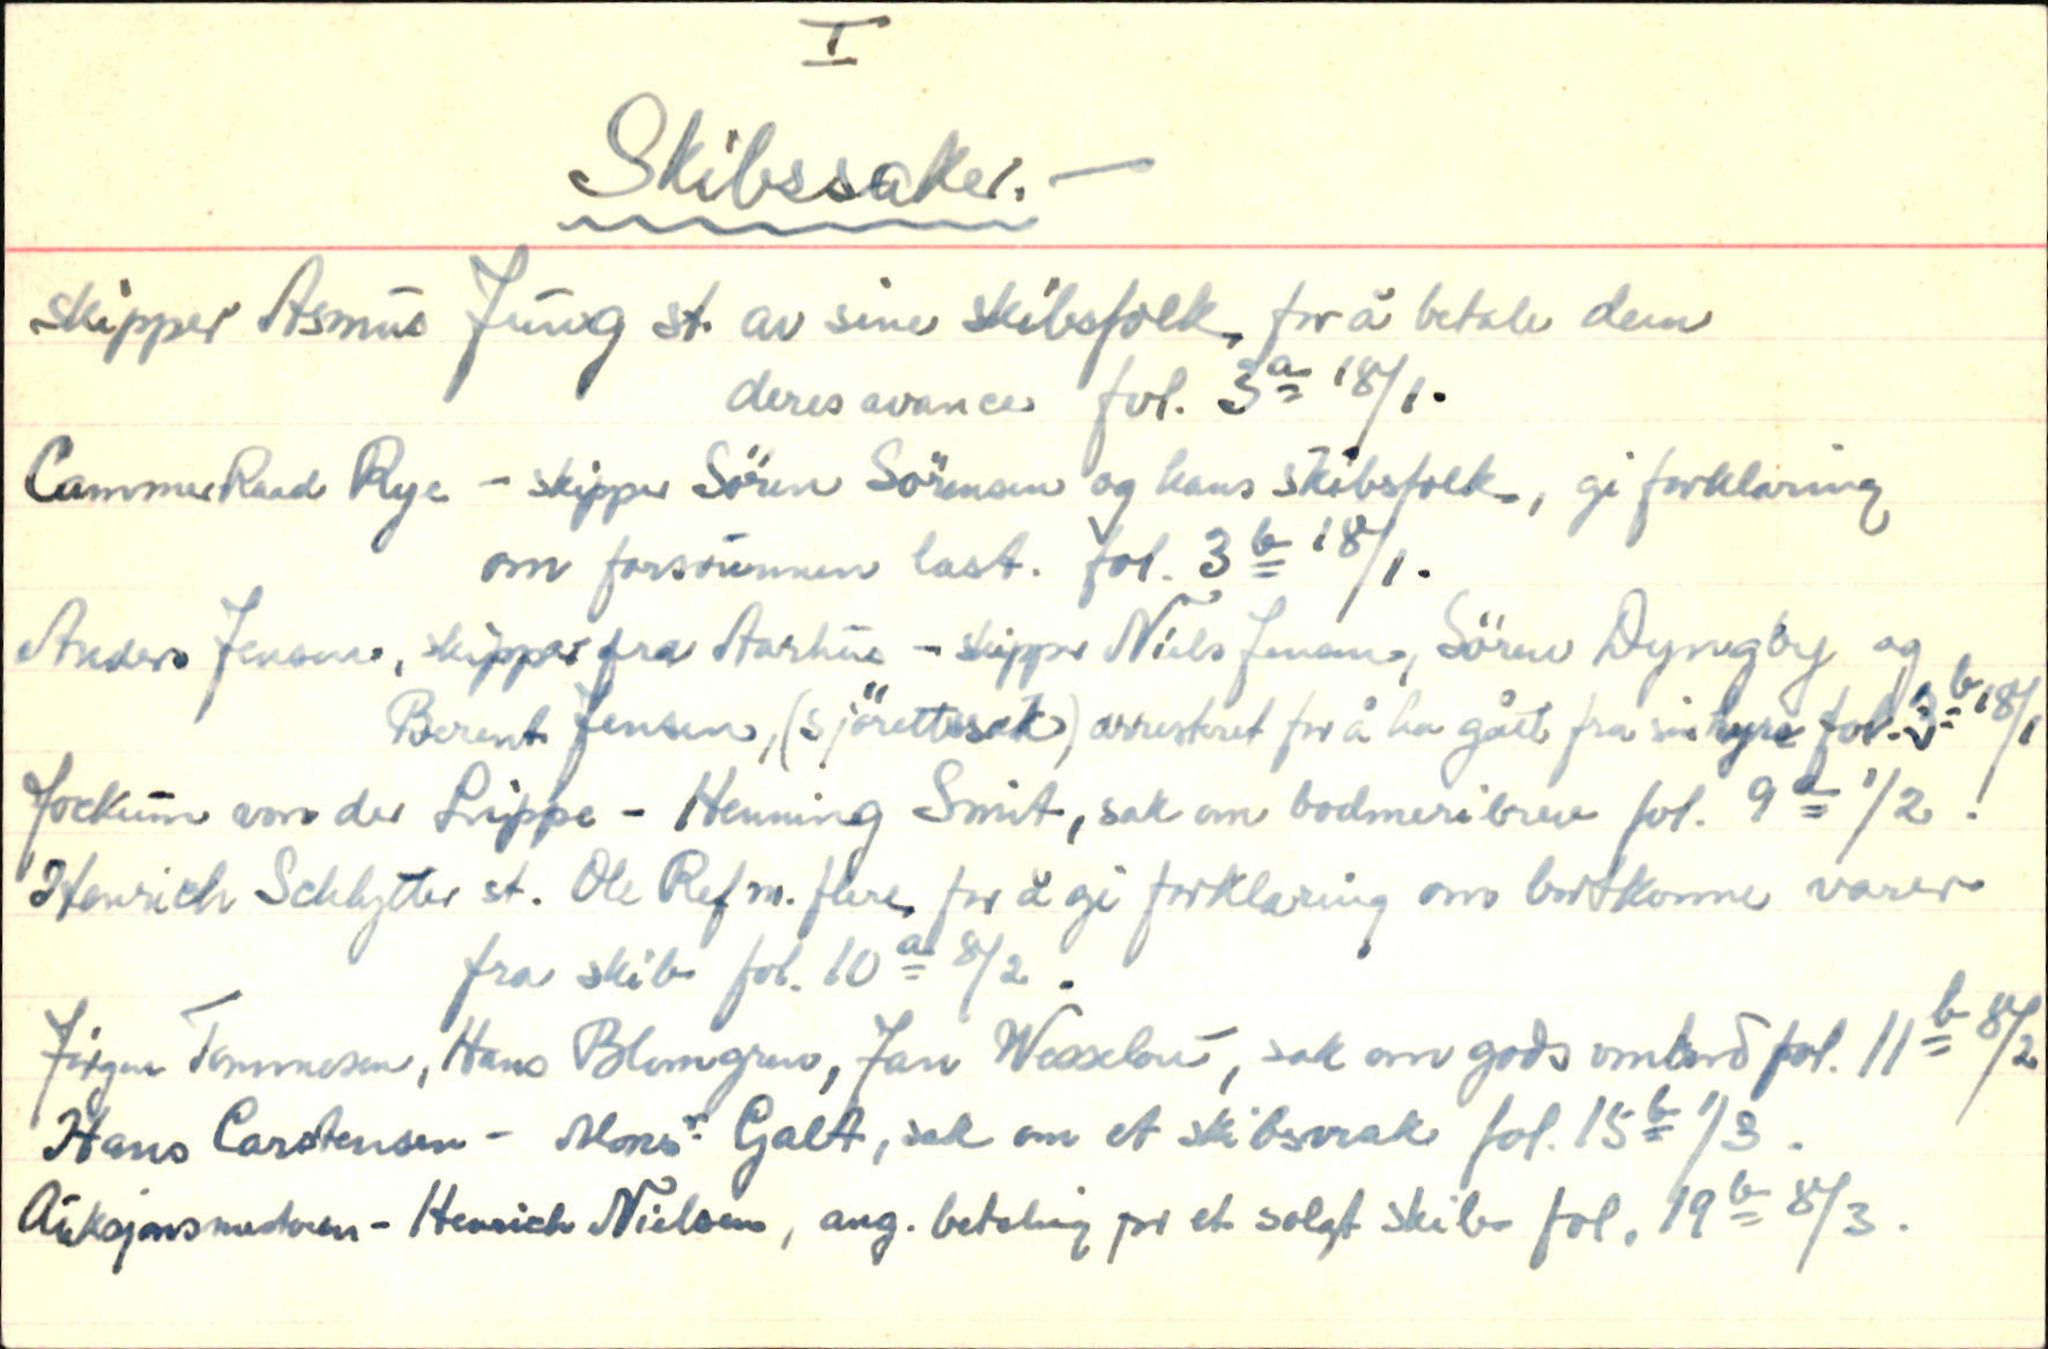 I
Skibssaker. —
skipper Asmus Jung st. av sine skibsfolk, for å betale dem
deres avance fol. 3a 18/1.
CammerRaad Rye - skipper Sören Sörensen og hans skibsfolk, gi forklaring
om forsvunnen last. fol. 3b 18/1.
Anders Jensen, skipper fra Aarhus - skipper Niels Jensen, Sören Dyngby og
Berent Jensen, (sjörettssak) arresteret for å ha gått fra sin hyre fol. 3b 18/1
Jockum von der Lippe - Henning Smit, sak om bodmeribrev fol. 9a 1/2.
Henrich Schlytter st. Ole Ref m. flere, for å gi forklaring om bortkomne varer
fra skib fol. 10a 8/2.
Jörgen Tommesen, Hans Blomgren, Jan Wesselou, sak om gods ombord fol. 11b 8/2
Hans Carstensen - Monsr. Galt, sak om et skibsvrak fol. 15b 1/3.
Auksjons - Henrich Nielsen, ang. betaling for et solgt skib fol. 19b 8/3.